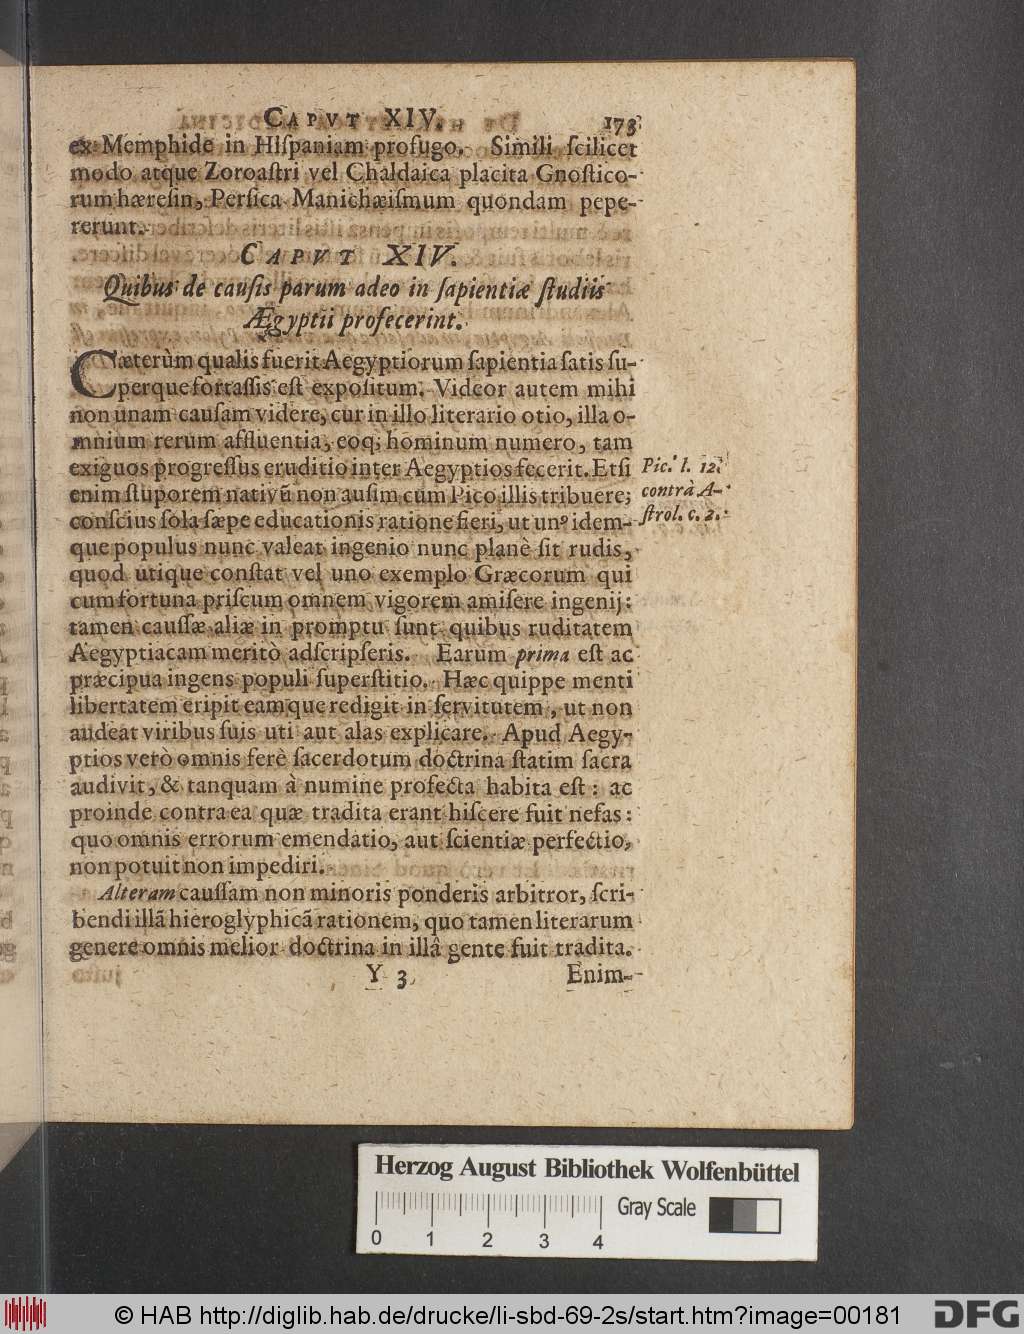 CAPVT XIV. 173
ex Memphide in Hiſpaniam profugo. Simili ſcilicet
modo atque Zoroaſtri vel Chaldaica placita Gnoſtico-
rum hæreſin, Perſica Manichæiſmum quondam pepe-
rerunt.
CAPVT XIV.
Quibus de cauſis parum adeo in ſapientiæ ſtudiis
Ægyptii profecerint.
Cæterùm qualis fuerit Aegyptiorum ſapientia ſatis ſu-
perque fortaſſis eſt expoſitum. Videor autem mihi
non unam cauſam videre, cur in illo literario otio, illa o-
mnium rerum affluentia, eoq; hominum numero, tam
exiguos progreſſus eruditio inter Aegyptios fecerit. Etſi
enim ſtuporem nativũ non auſim cum Pico illis tribuere;
conſcius ſola ſæpe educationis ratione fieri, ut unꝰ idem-
que populus nunc valeat ingenio nunc planè ſit rudis,
quod utique conſtat vel uno exemplo Græcorum qui
cum fortuna priſcum omnem vigorem amiſere ingenij:
tamen cauſſæ aliæ in promptu ſunt quibus ruditatem
Aegyptiacam meritò adſcripſeris. Earum prima eſt ac
præcipua ingens populi ſuperſtitio. Hæc quippe menti
libertatem eripit eamque redigit in ſervitutem, ut non
audeat viribus ſuis uti aut alas explicare. Apud Aegy-
ptios verò omnis ferè ſacerdotum doctrina ſtatim ſacra
audivit, & tanquam à numine profecta habita eſt: ac
proinde contra ea quæ tradita erant hiſcere fuit nefas:
quo omnis errorum emendatio, aut ſcientiæ perfectio,
non potuit non impediri.
Alteram cauſſam non minoris ponderis arbitror, ſcri-
bendi illã hieroglyphicã rationem, quo tamen literarum
genere omnis melior doctrina in illâ gente fuit tradita.
Y 3 Enim-
Pic. l. 12.
contrà A-
ſtrol. c. 2.
Herzog August Bibliothek Wolfenbüttel
Gray Scale
0 1 2 3 4
© HAB http://diglib.hab.de/drucke/li-sbd-69-2s/start.htm?image=00181
DFG